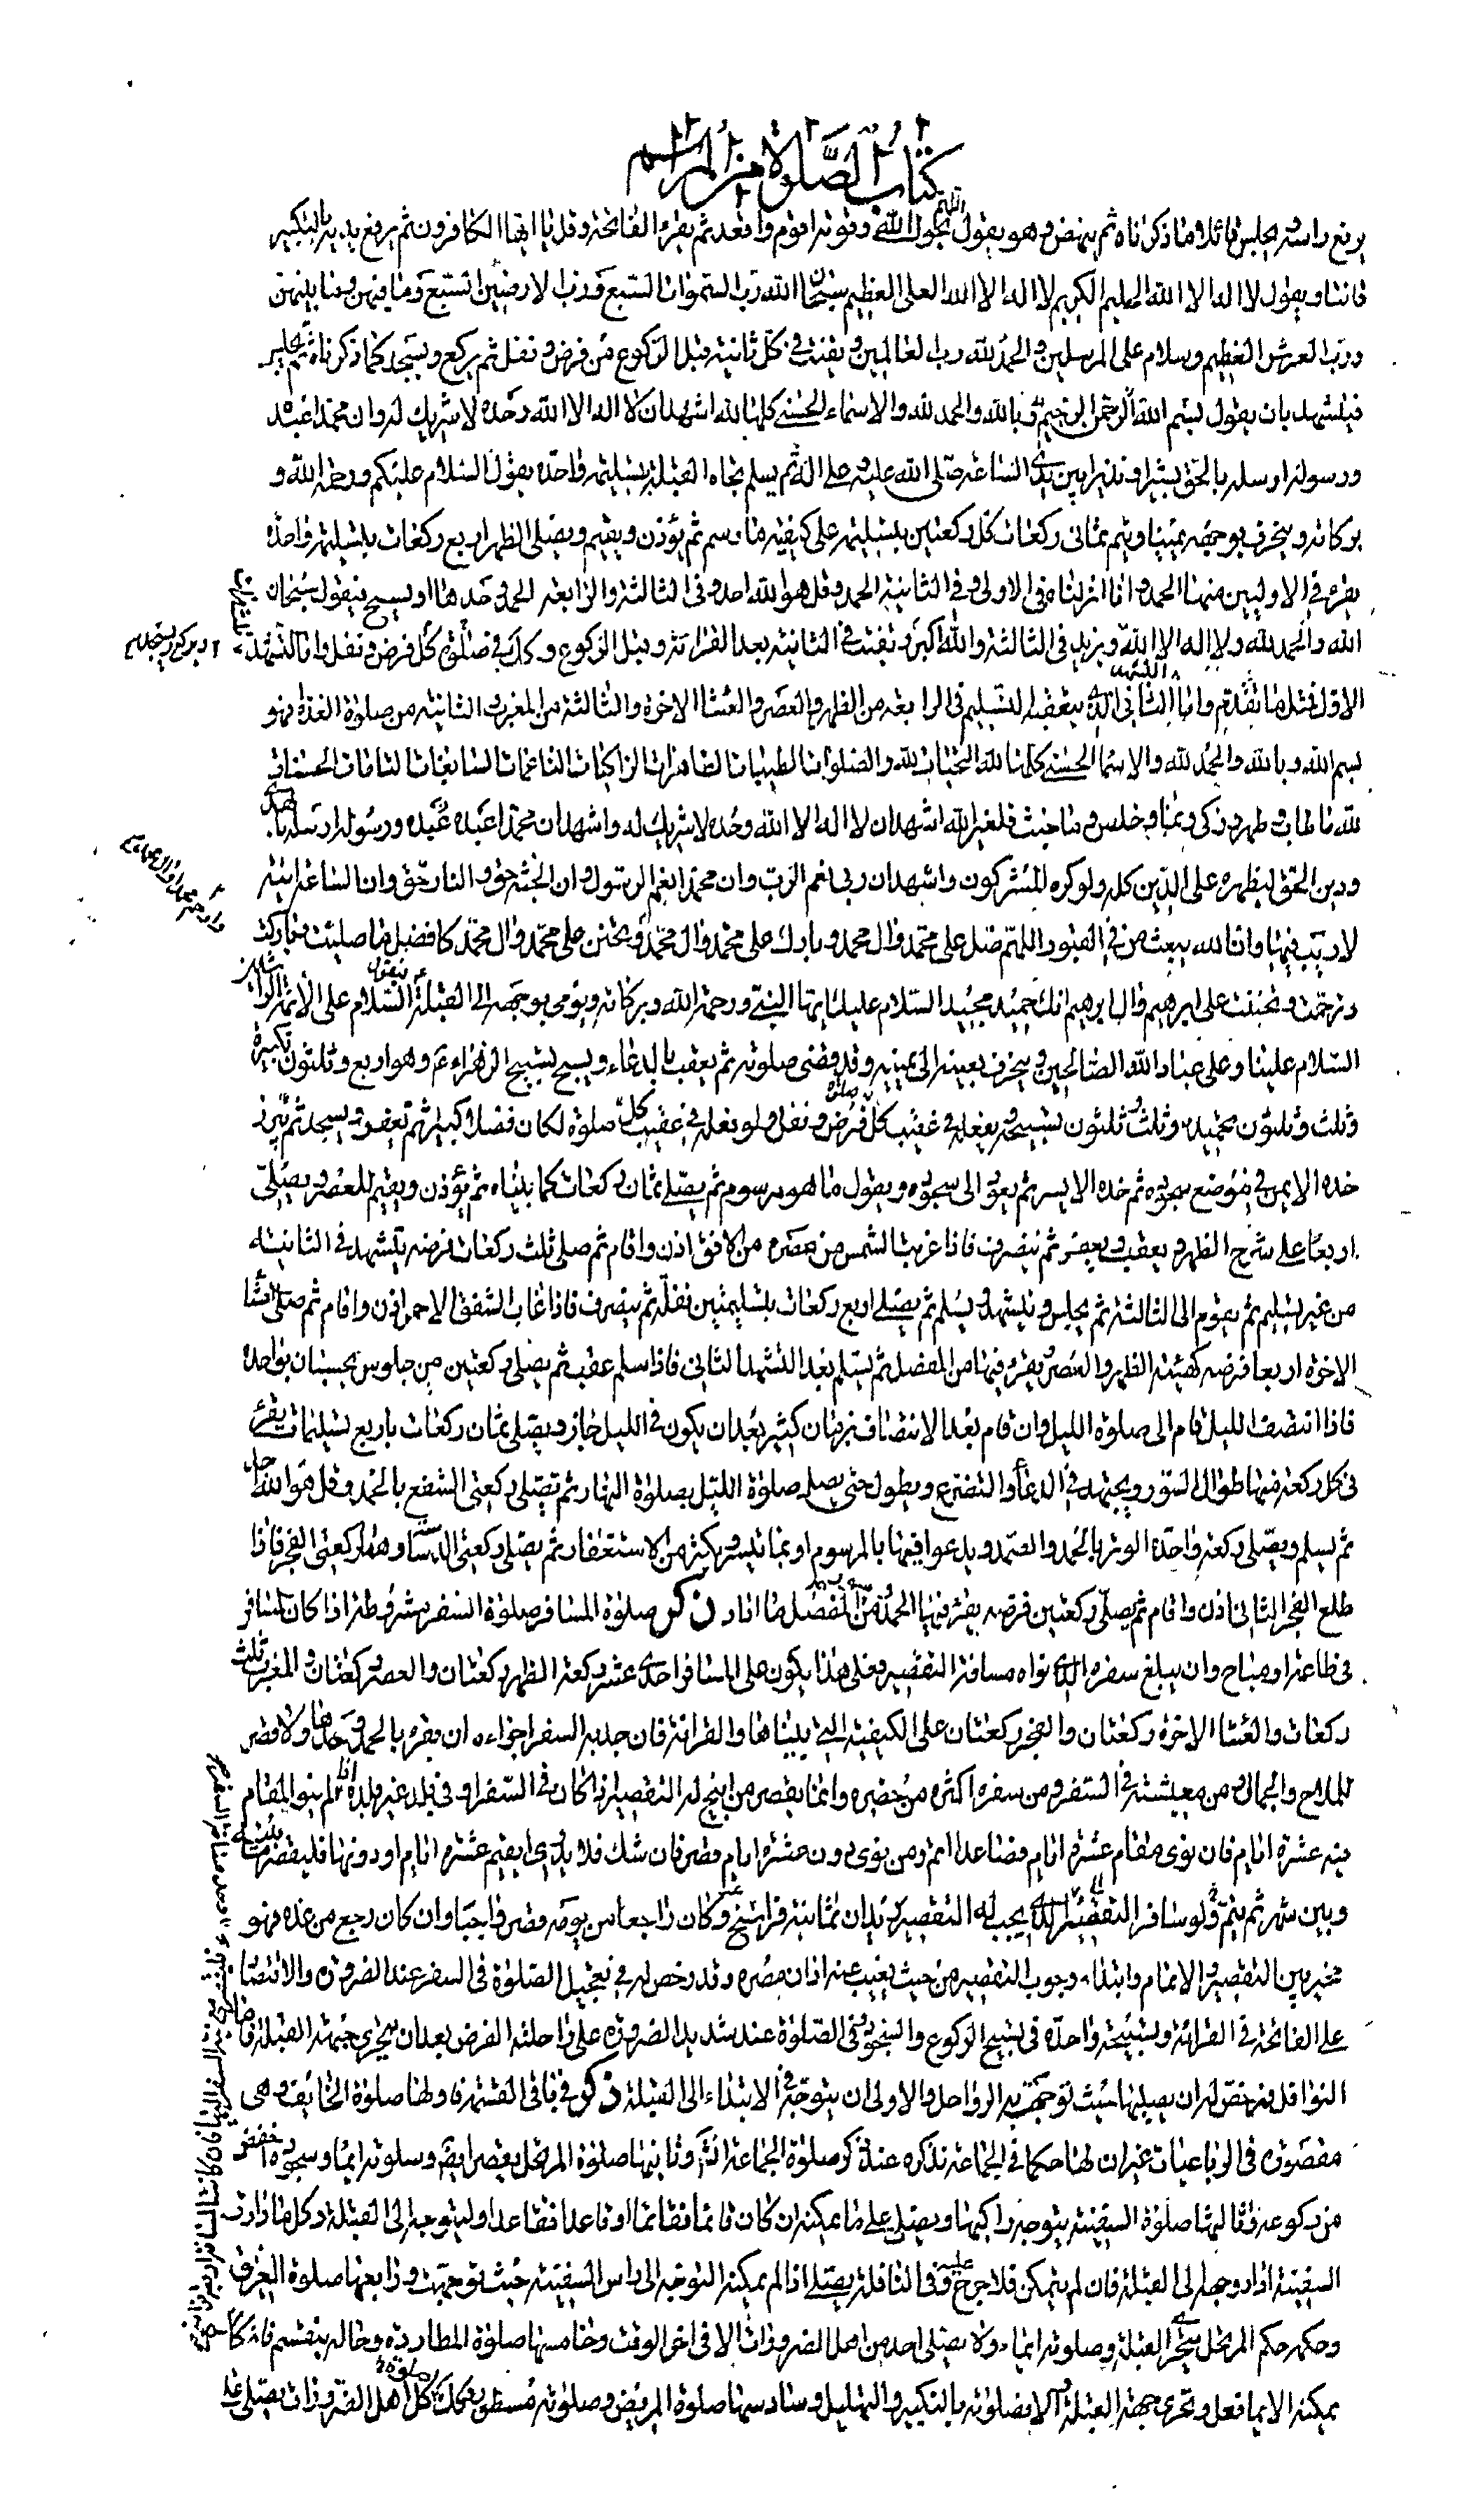 كتاب الصلوة من المراسم
يرفع راسه ويجلس قائلا ما ذكرناه ثم ينهض وهو يقول بحول الله وقوته اقوم واقعد ثم يقرء الفاتحة وقل يا ايها الكافرون ثم يرفع يديه بالتكبير
قانتا ويقول لا اله الا الله الحليم الكريم لا اله الا الله العلى العظيم سبحان الله رب السموات السبع ورب الارضين السبع وما فيهن وما بينهن
ورب العرش العظيم وسلام على المرسلين والحمد لله رب العالمين ويقنت فى كل ثانية قبل الركوع من فرض ونفل ثم يركع ويسجد كما ذكرناه ثم يجلس
فيتشهد بان يقول بسم الله الرحمن الرحيم وبالله والحمد لله والاسماء الحسنى كلها لله اشهد ان لا اله الا الله وحده لا شريك له وان محمدا عبده
ورسوله ارسله بالحق بشيرا ونذيرا بين يدى الساعة صلى الله عليه وعلى اله ثم يسلم تجاه القبلة تسليمة واحدة يقول السلام عليكم ورحمة الله و
بركاته وينحرف بوجهه يمينا ويتم ثمانى ركعات كل ركعتين بتسليمة على كيفية ما رسم ثم يؤذن ويقيم ويصلى الظهر اربع ركعات بتسليمة واحدة
يقرء فى الاوليين منها الحمد وانا انزلناه فى الاولى وفى الثانية الحمد وقل هو الله احد وفى الثالثة والرابعة الحمد وحدها او يسبح فيقول سبحان
الله والحمد لله ولا اله الا الله ويزيد فى الثالثة والله اكبر ويقنت فى الثانية بعد القرائة وقبل الركوع وكذلك فى صلوة كل فرض ونفل واما التشهد
الاول فمثل ما تقدم واما الثانى الذى يتعقبه التسليم فى الرابعة من الظهر والعصر والعشا الاخرة والثالثة من المغرب والثانية من صلوة الغداة فهو
بسم الله وبالله والحمد لله والاسما الحسنى كلها لله التحيات لله والصلوات الطيبات الطاهرات الزاكيات الناعمات السابغات التامات الحسنات
لله ما طاب وطهر وزكى ونما وخلص وما خبث فلغير الله اشهد ان لا اله الا الله وحده لا شريك له واشهد ان محمدا عبده ورسوله ارسله بالهدى
ودين الحق ليظهره على الدين كله ولو كره المشركون واشهد ان ربى نعم الرب وان محمدا نعم الرسول وان الجنة حق والنار حق وان الساعة اتية
لا ريب فيها وان الله يبعث من فى القبور اللهم صل على محمد وال محمد وبارك على محمد وال محمد وتحنن على محمد وال محمد كافضل ما صليت وباركت
وترحمت وتحننت على ابرهيم وال ابرهيم انك حميد مجيد السلام عليك ايها النبى ورحمة الله وبركاته ويومى بوجهه الى القبلة فيقول السلام على الائمة الراشدين
السلام علينا وعلى عباد الله الصالحين وينحرف بعينه الى يمينه وقد قضى صلوته ثم يعقب بالدعاء ويسبح تسبيح الزهراء ع وهو اربع وثلثون تكبيرة
وثلث وثلثون تحميدة وثلث وثلثون تسبيحة يفعله فى عقيب كل فرض ونفل ولو فعله فى عقيب كل صلوة لكان فضلا كبيرا ثم يعفر ويسجد ثم
خده الايمن فى موضع سجوده ثم خده الايسر ثم يعود الى سجوده ويقول ما هو مرسوم ثم يصلى ثمان ركعات كما بيناه ثم يؤذن ويقيم للعصر ويصلى
اربعا على شرح الظهر ويعقب ويعفر ثم ينصرف فاذا غربت الشمس من مصره من الافق اذن واقام ثم صلى ثلث ركعات فرضه يتشهد فى الثانية
من غير تسليم ثم يقوم الى الثالثة ثم يجلس ويتشهد ويسلم ثم يصلى اربع ركعات بتسليمتين نفلة ثم ينصرف فاذا غاب الشفق الاحمر اذن واقام ثم صلى العشا
الاخرة اربعا فرضه كهيئة الظهر والعصر يقرء فيها من المفصل ثم يسلم بعد التشهد الثانى فاذا سلم عقب ثم يصلى ركعتين من جلوس تحسبان بواحدة
فاذا انتصف الليل قام الى صلوة الليل وان قام بعد الانتصاف بزمان كثير بعد ان يكون فى الليل جاز ويصلى ثمان ركعات باربع تسليمات يقرء
فى كل ركعة منها طوال السور ويجتهد فى الدعاء والتضرع ويطول حتى يصل صلوة الليل بصلوة النهار ثم يصلى ركعتى الشفع بالحمد وقل هو الله احد
ثم يسلم ويصلى ركعة واحدة الوتر بالحمد والصمد ويدعو فيها بالمرسوم او بما تيسر ويكثر من الاستغفار ثم يصلى ركعتى الدساسة وهما ركعتى الفجر فاذا
طلع الفجر الثانى اذن واقام ثم يصلى ركعتين فرضه يقرء فيها الحمد ومن المفصل ما اراد ذكر صلوة المسافر صلوة السفر مشروطة اذا كان السفر
فى طاعة او مباح وان يبلغ سفره الذى نواه مسافة التقصير فعلى هذا يكون على المسافر احدى عشر ركعة الظهر ركعتان والعصر ركعتان والمغرب ثلث
ركعات والعشا الاخرة ركعتان والفجر ركعتان على الكيفية التى بيناها والقرائة فان جد به السفر اجزاءه ان يقرء بالحمد وحدها ولا قصر
للملاح والجمال ومن معيشته فى السفر ومن سفره اكثر من حضره وانما يقصر من ابيح له التقصير اذا كان فى السفر او فى بلد غير بلده اذا لم ينو المقام
فيه عشرة ايام فان نوى مقام عشرة ايام فصاعدا اتم ومن نوى دون عشرة ايام قصر فان شك فلا يدرى ايقيم عشرة ايام او دونها فليقصر ما بينه
وبين شهر ثم يتم ولو سافر السفر الذى يجب له التقصير بريدان ثمانية فراسخ وكان راجعا من يومه قصر واجبا وان كان رجع من غده فهو
مخير بين التقصير والاتمام وابتداء وجوب التقصير من حيث يغيب عنه اذان مصره وقد رخص له فى تعجيل الصلوة فى السفر عند الضرورة والاقتصار
على الفاتحة فى القرائة وتسبيحة واحدة فى تسبيح الركوع والسجود وفى الصلوة عند شديد الضرورة على راحلته الفرض بعد ان يتحرى جهة القبلة فاما
النوافل فرخص له ان يصليها حيث توجهت به الرواحل والاولى ان يتوجه فى الابتداء الى القبلة ذكر فى باقى القسمة فاولها صلوة الخائف وهى
مقصورة فى الرباعيات غير ان لها حكما فى الجماعة نذكره عند ذكر صلوة الجماعة انش وثانيها صلوة المرتحل يقصر ايضا وصلوته ايماء وسجوده اخفض
من ركوعه وثالثها صلوة السفينة يتوجه راكبها ويصلى على ما يمكنه ان كان قائما فقائما او قاعدا فقاعدا وليتوجه الى القبلة وكلما دارت
السفينة ادار وجهه الى القبلة فان لم يتمكن فلا حرج عليه وفى النافلة يصلى اذا لم يمكنه التوجه الى راس السفينة حيث توجهت ورابعها صلوة الغرق
وحكمه حكم المرتحل يتحرى القبلة وصلوته ايماء ولا يصلى احد من اهل الضرورات الا فى اخر الوقت وخامسها صلوة المطاردة وحاله ينقسم فان كان
يمكنه الايما فعل وتحرى جهة القبلة والا فصلوته بالتكبير والتهليل وسادسها صلوة المريض وصلوته وكذلك كل اهل الضرورات يصلى على